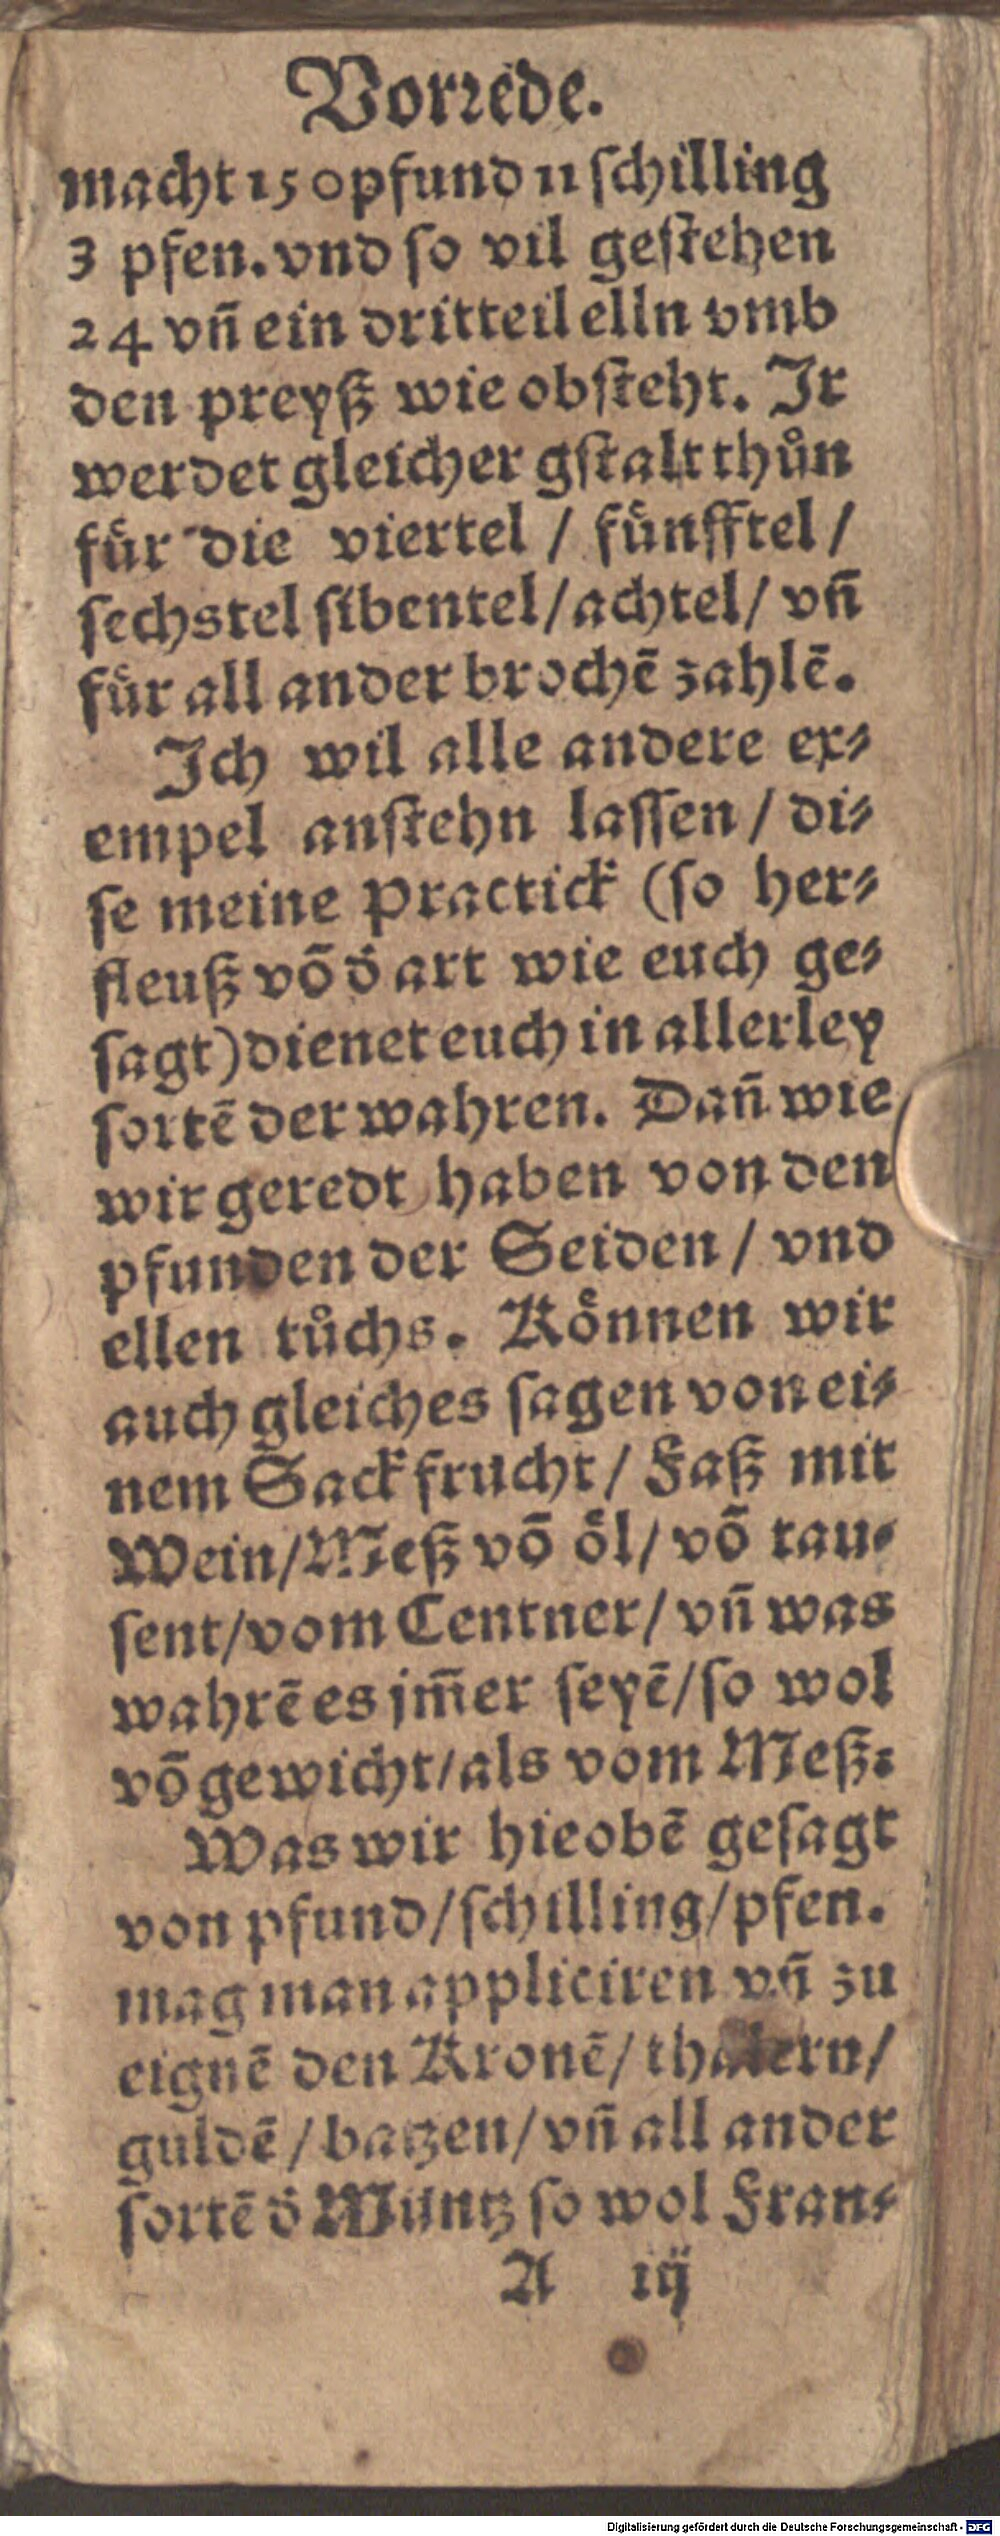 Vorrede.
macht 150 pfund 11 schilling
3 pfen. vnd so vil gestehen
24 vñ ein dritteil elln vmb
den preyß wie obsteht. Ir
werdet gleicher gstalt thůn
fuͤr die viertel / fuͤnfftel /
sechstel sibentel / achtel / vñ
fuͤr all ander brochē zahlē.
Ich wil alle andere ex⸗
empel anstehn lassen / di⸗
se meine Practick (so her⸗
fleuß võ d̄ art wie euch ge⸗
sagt) dienet euch in allerley
sortē der wahren. Dañ wie
wir geredt haben von den
pfunden der Seiden / vnd
ellen tůchs. Koͤnnen wir
auch gleiches sagen von ei⸗
nem Sack frucht / Faß mit
Wein / Meß võ oͤl / võ tau⸗
sent / vom Centner / vñ was
wahrē es jm̄er seyē / so wol
võ gewicht / als vom Meß.
Was wir hieobē gesagt
von pfund / schilling / pfen.
mag man appliciren vñ zu
eignē den Kronē / thalern /
guldē / batzen / vñ all ander
sortē d̄ Müntz so wol Fran⸗
A iij
Digitalisierung gefördert durch die Deutsche Forschungsgemeinschaft - DFG